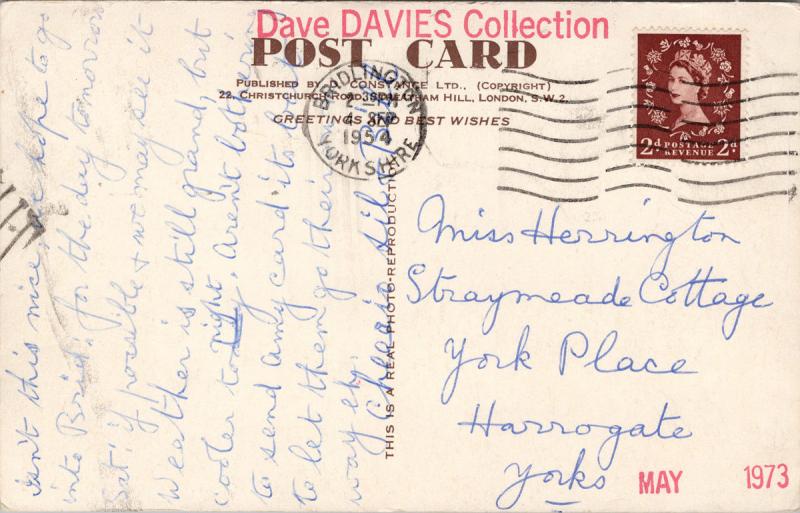 Dave DAVIES Collection
POST CARD
PUBLISHED BY CONSTANCE LTD., (COPYRIGHT)
22, CHRISTCHURCH ROAD, STREATHAM HILL, LONDON, S.W.2.
GREETINGS AND BEST WISHES
BRIDLINGTON
1954
YORKSHIRE
2d POSTAGE 2d
REVENUE
THIS IS A REAL PHOTO-REPRODUCTION
Isn't this nice, we hope to go
into Brid. for the day tomorrow
Sat. if possible & we may see it
Weather is still grand, but
cooler to night. Aren't bothering
to send Amy card its
to let them go their
way eh.
Cheerio
Miss Herrington
Straymeade Cottage
York Place
Harrogate
Yorks
MAY 1973